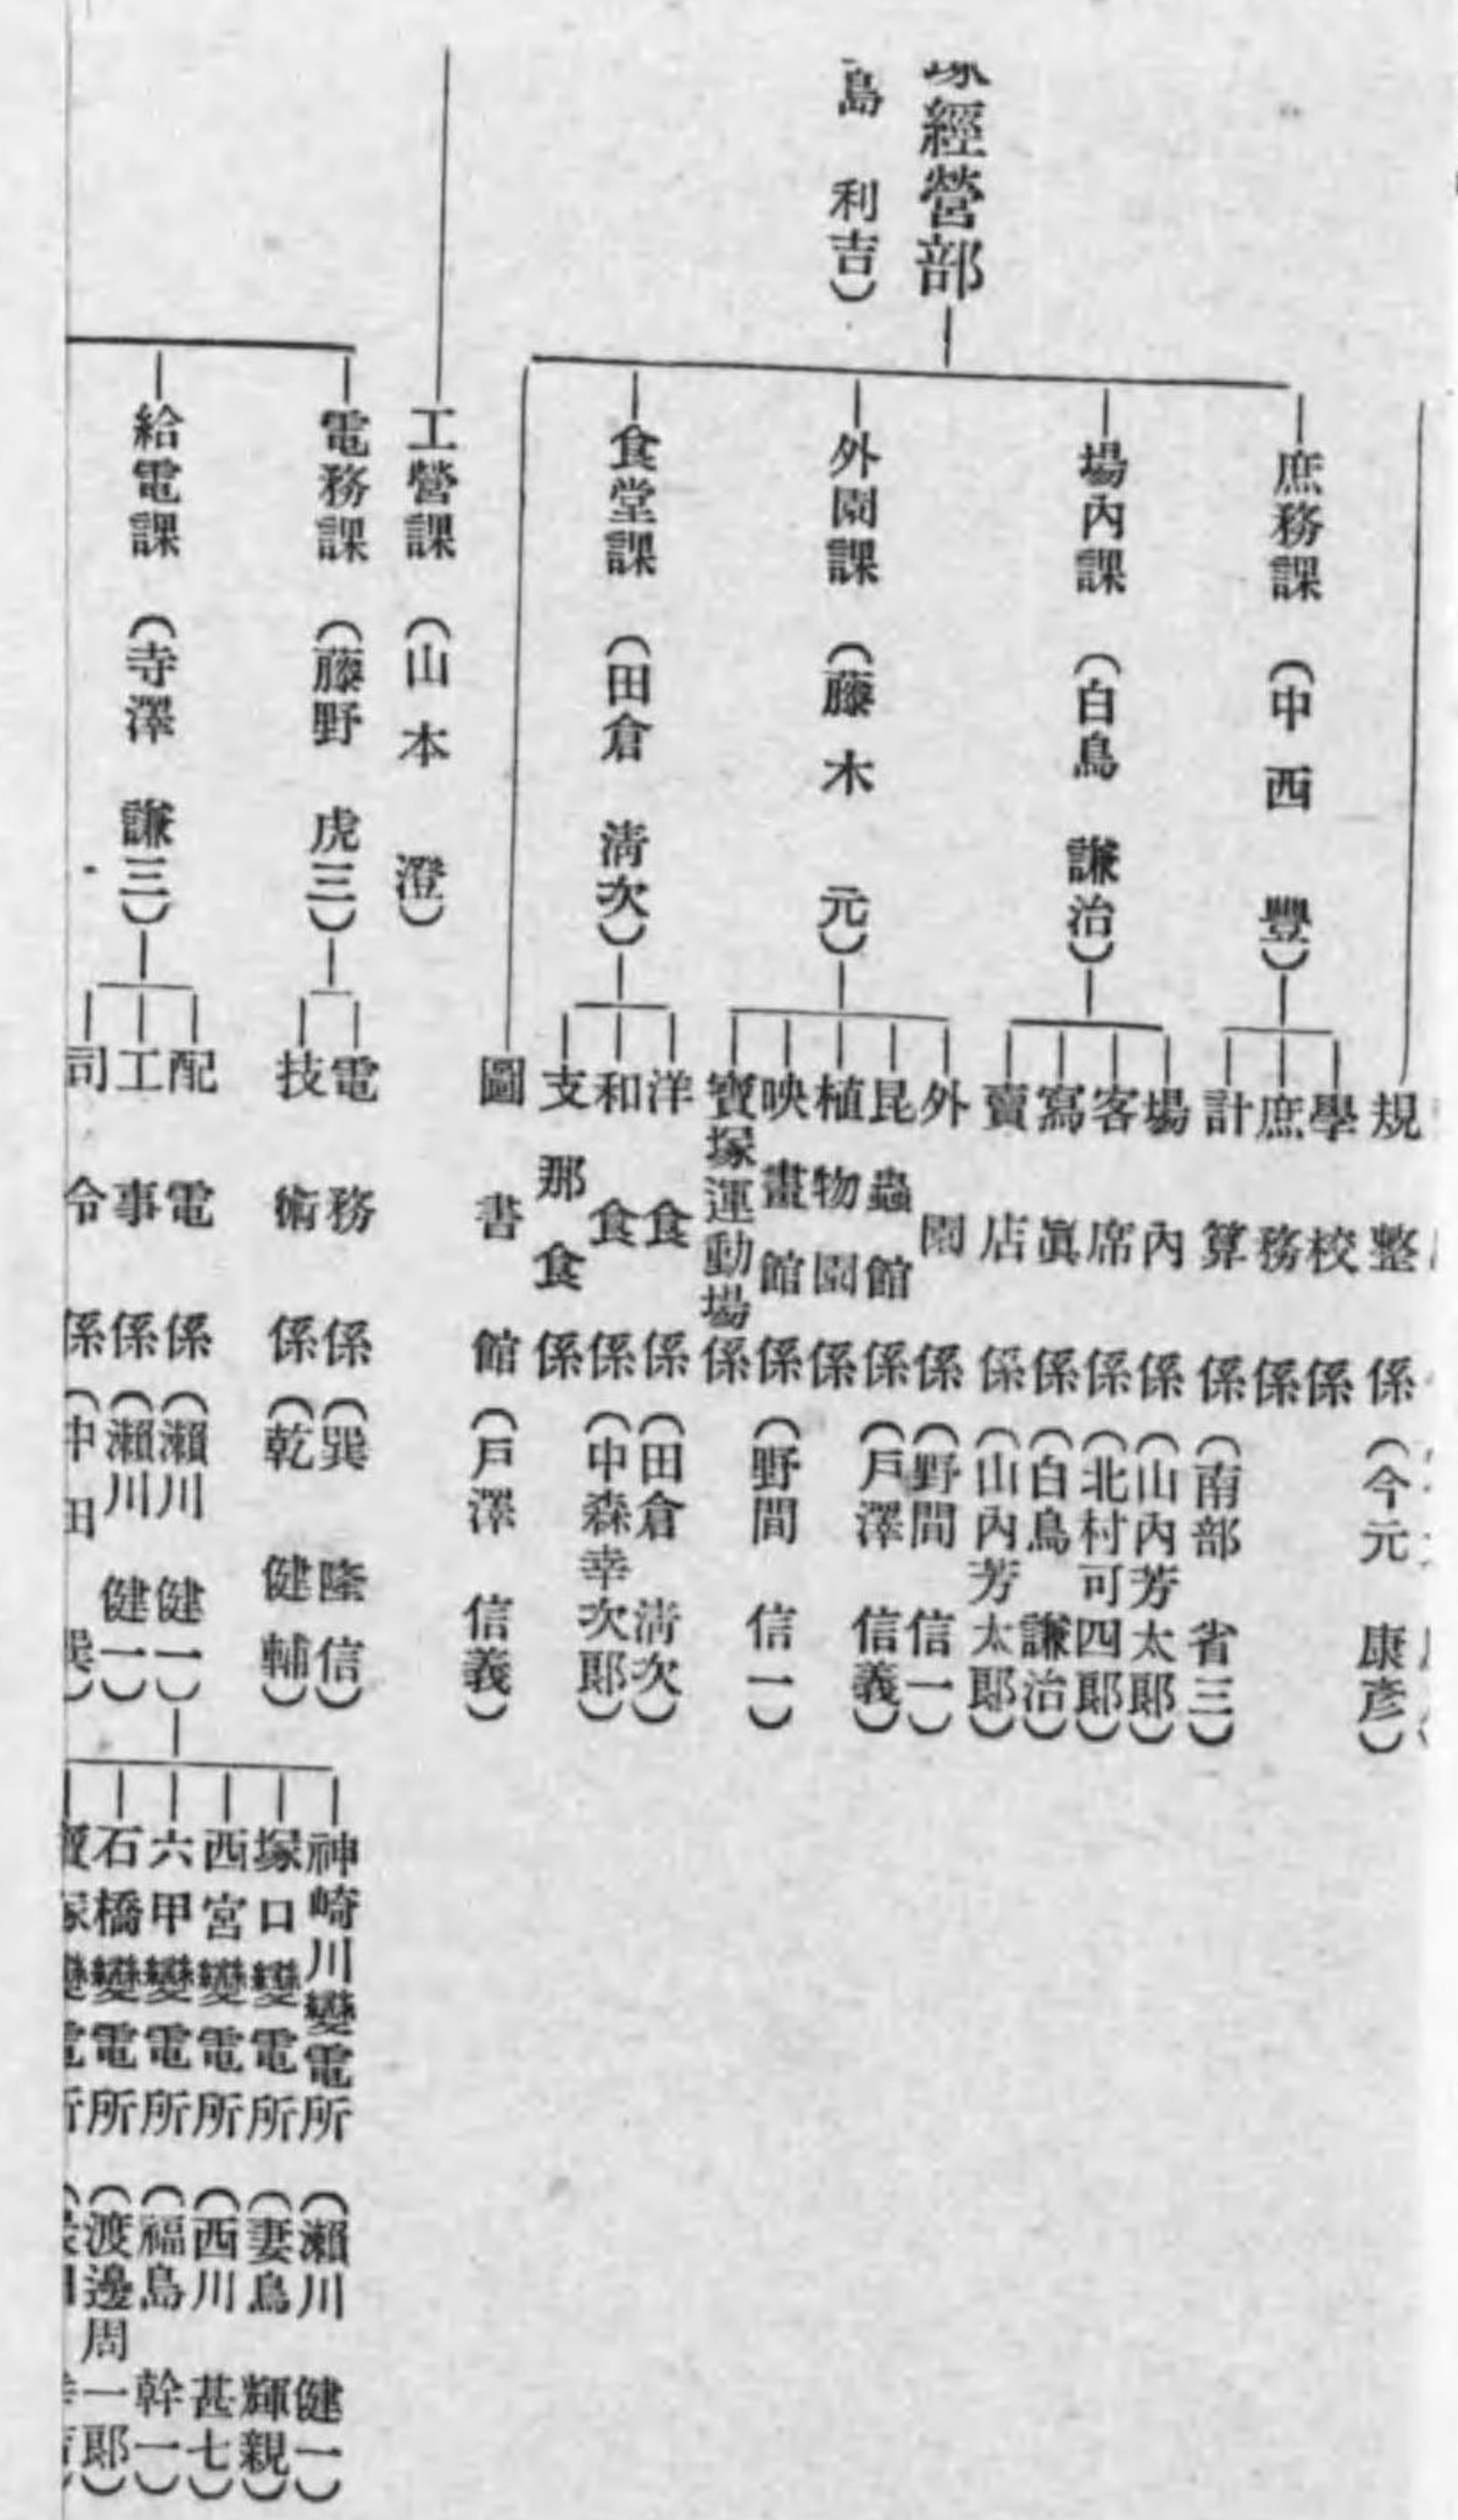 規整係（今元 康彦）
經營部
島 利吉）
庶務課（中西 豐）
學校係
庶務係
計算係（南部 省三）
場內課（白鳥 謙治）
場內係（山內芳太郎）
客席係（北村可四郎）
寫眞係（白鳥 謙治）
賣店係（山內芳太郎）
外園課（藤木 元）
外園係（野間 信一）
昆蟲館係（戶澤 信義）
植物園係
映畫館係（野間 信一）
寶塚運動場係
食堂課（田倉 清次）
洋食係（田倉 清次）
和食係（中森幸次郎）
支那食係
圖書館（戶澤 信義）
工營課（山本 澄）
電務課（藤野 虎三）
電務係（巽 隆信）
技術係（乾 健輔）
給電課（寺澤 謙三）
配電係（瀨川 健一）
神崎川變電所（瀨川 健一）
塚口變電所（妻鳥 輝親）
西宮變電所（西川 甚七）
六甲變電所（福島 幹一）
石橋變電所（渡邊周一郎）
工事係（瀨川 健一）
司令係（中田